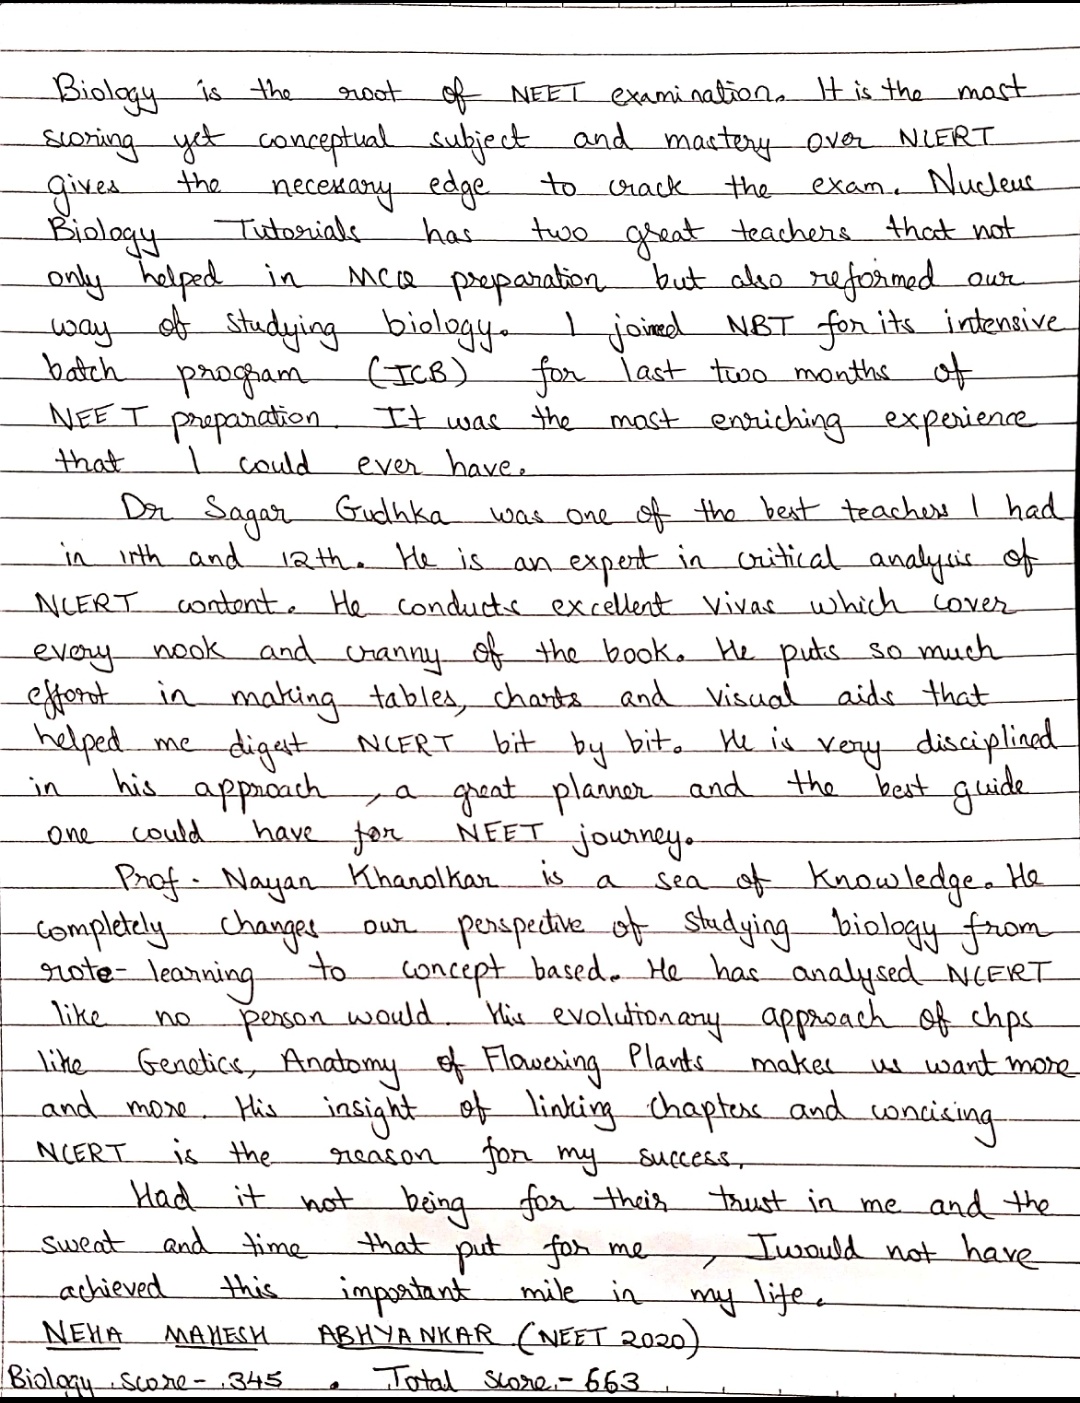 Biology is the root of NEET examination. It is the most
scoring yet conceptual subject and mastery over NCERT
gives the necessary edge to crack the exam. Nucleus
Biology Tutorials has two great teachers that not
only helped in MCQ preparation but also reformed our
way of studying biology. I joined NBT for its intensive
batch program (ICB) for last two months of
NEET preparation. It was the most enriching experience
that I could ever have.
Dr Sagar Gudhka was one of the best teachers I had
in 11th and 12th. He is an expert in critical analysis of
NCERT content. He conducts excellent vivas which cover
every nook and cranny of the book. He puts so much
effort in making tables, charts and visual aids that
helped me digest NCERT bit by bit. He is very disciplined
in his approach, a great planner and the best guide
one could have for NEET journey.
Prof. Nayan Khanolkar is a sea of knowledge. He
completely changes our perspective of studying biology from
rote-learning to concept based. He has analysed NCERT
like no person would. His evolutionary approach of chps
like Genetics, Anatomy of Flowering Plants makes us want more
and more. His insight of linking chapters and concising
NCERT is the reason for my success.
Had it not being for their trust in me and the
sweat and time that put for me, I would not have
achieved this important mile in my life.
NEHA MAHESH ABHYANKAR (NEET 2020)
Biology score - 345. Total score - 663